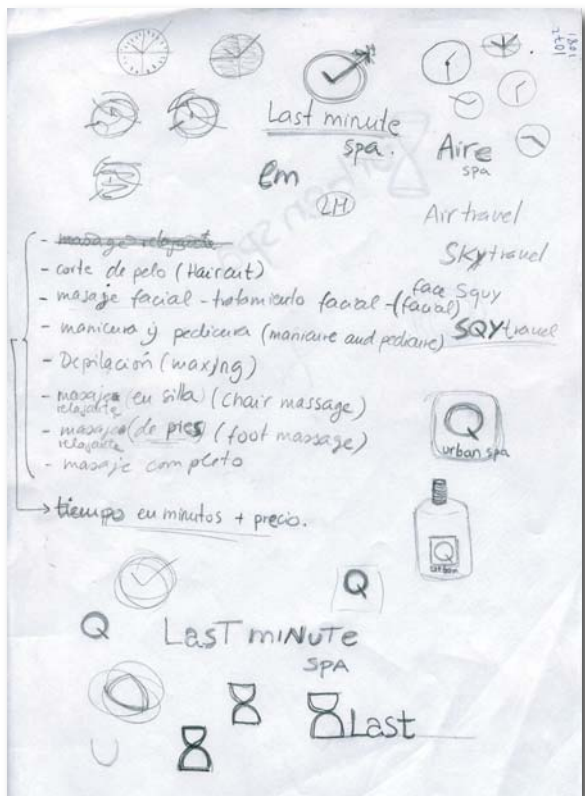 1081
1072
Last minute
spa.
Aire
spa
em
2M
urban spa
Air travel
SKytravel
face Squy
SQYtravel
- masage relajante
- corte de pelo (Haircut)
- masaje facial - tratamiento facial - (facial)
- manicura y pedicura (manicure and pedicure)
- Depilación (waxing)
- masaje relajante (en silla) (chair massage)
- masaje relajante (de pies) (foot massage)
- masaje completo
tiempo en minutos + precio.
Q
urban spa
Q
urban
Q
Q
LasT miNuTe
SPA
Last